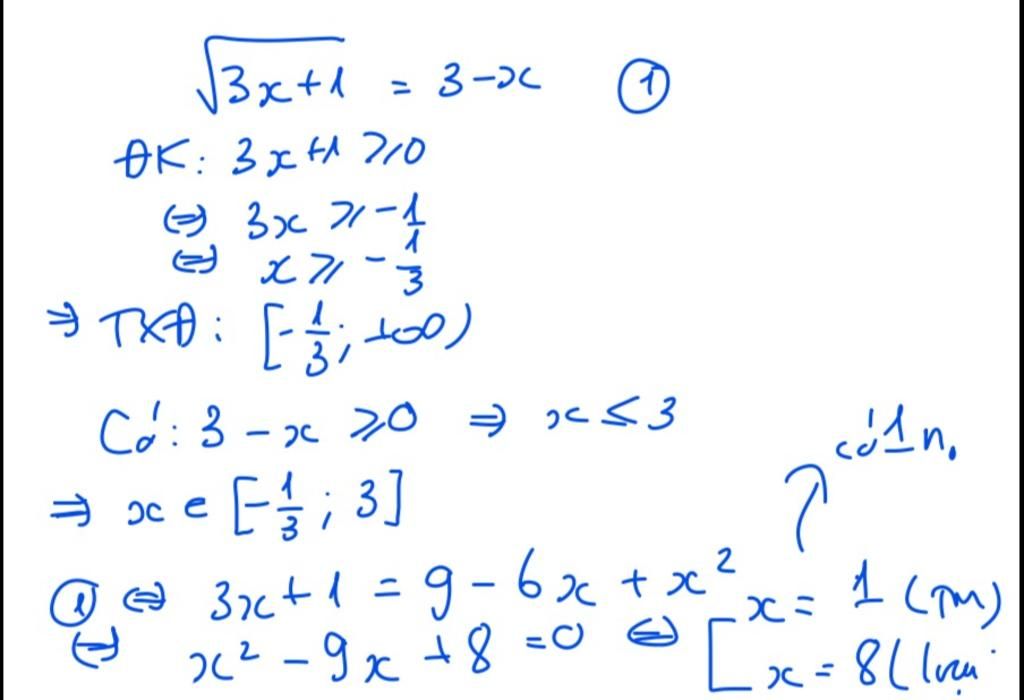 √(3x+1) = 3-x ①
ĐK: 3x+1 ≥ 0
⇔ 3x ≥ -1
⇔ x ≥ -1/3
⇒ TXĐ: [-1/3; +∞)
Có: 3 - x ≥ 0 ⇒ x ≤ 3
có 1 n.
⇒ x ∈ [-1/3; 3]
① ⇔ 3x+1 = 9 - 6x + x²
⇔ x² - 9x + 8 = 0 ⇔ [ x = 1 (TM)
x = 8 (loại